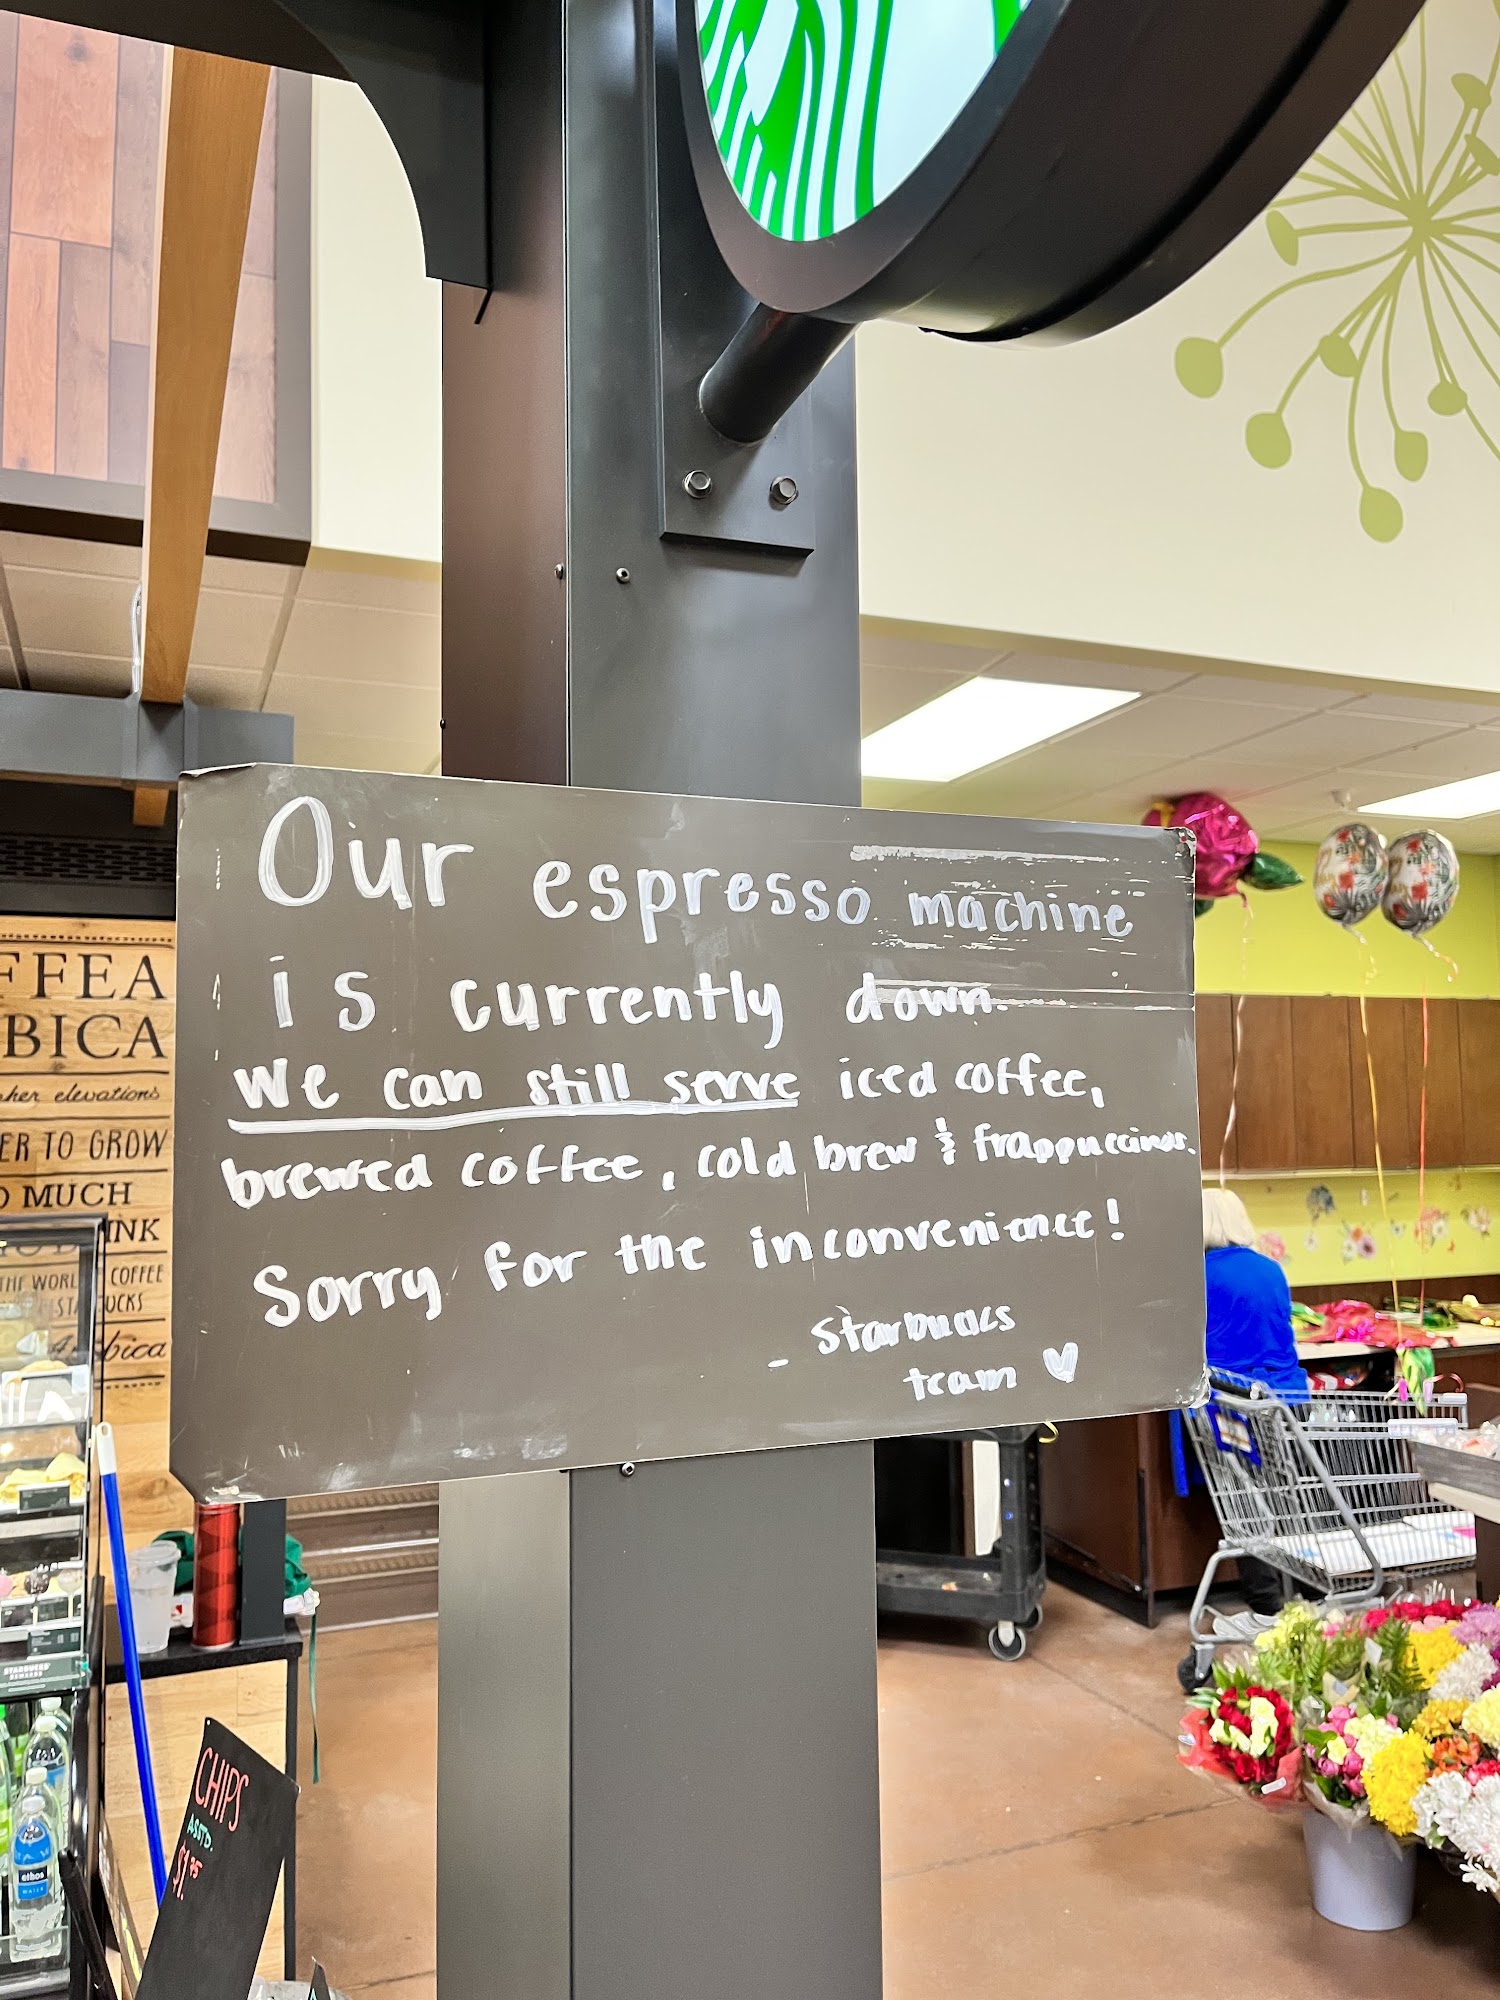 Our espresso machine
is currently down.
We can still serve iced coffee,
brewed coffee, cold brew & frappuccinos.
Sorry for the inconvenience!
- Starbucks
team ♥
FFEA
BICA
her elevations
ER TO GROW
O MUCH
INK
THE WORLD COFFEE
STARBUCKS
Arabica
STARBUCKS
CHIPS
ASSTD.
$1.95
ethos
WATER